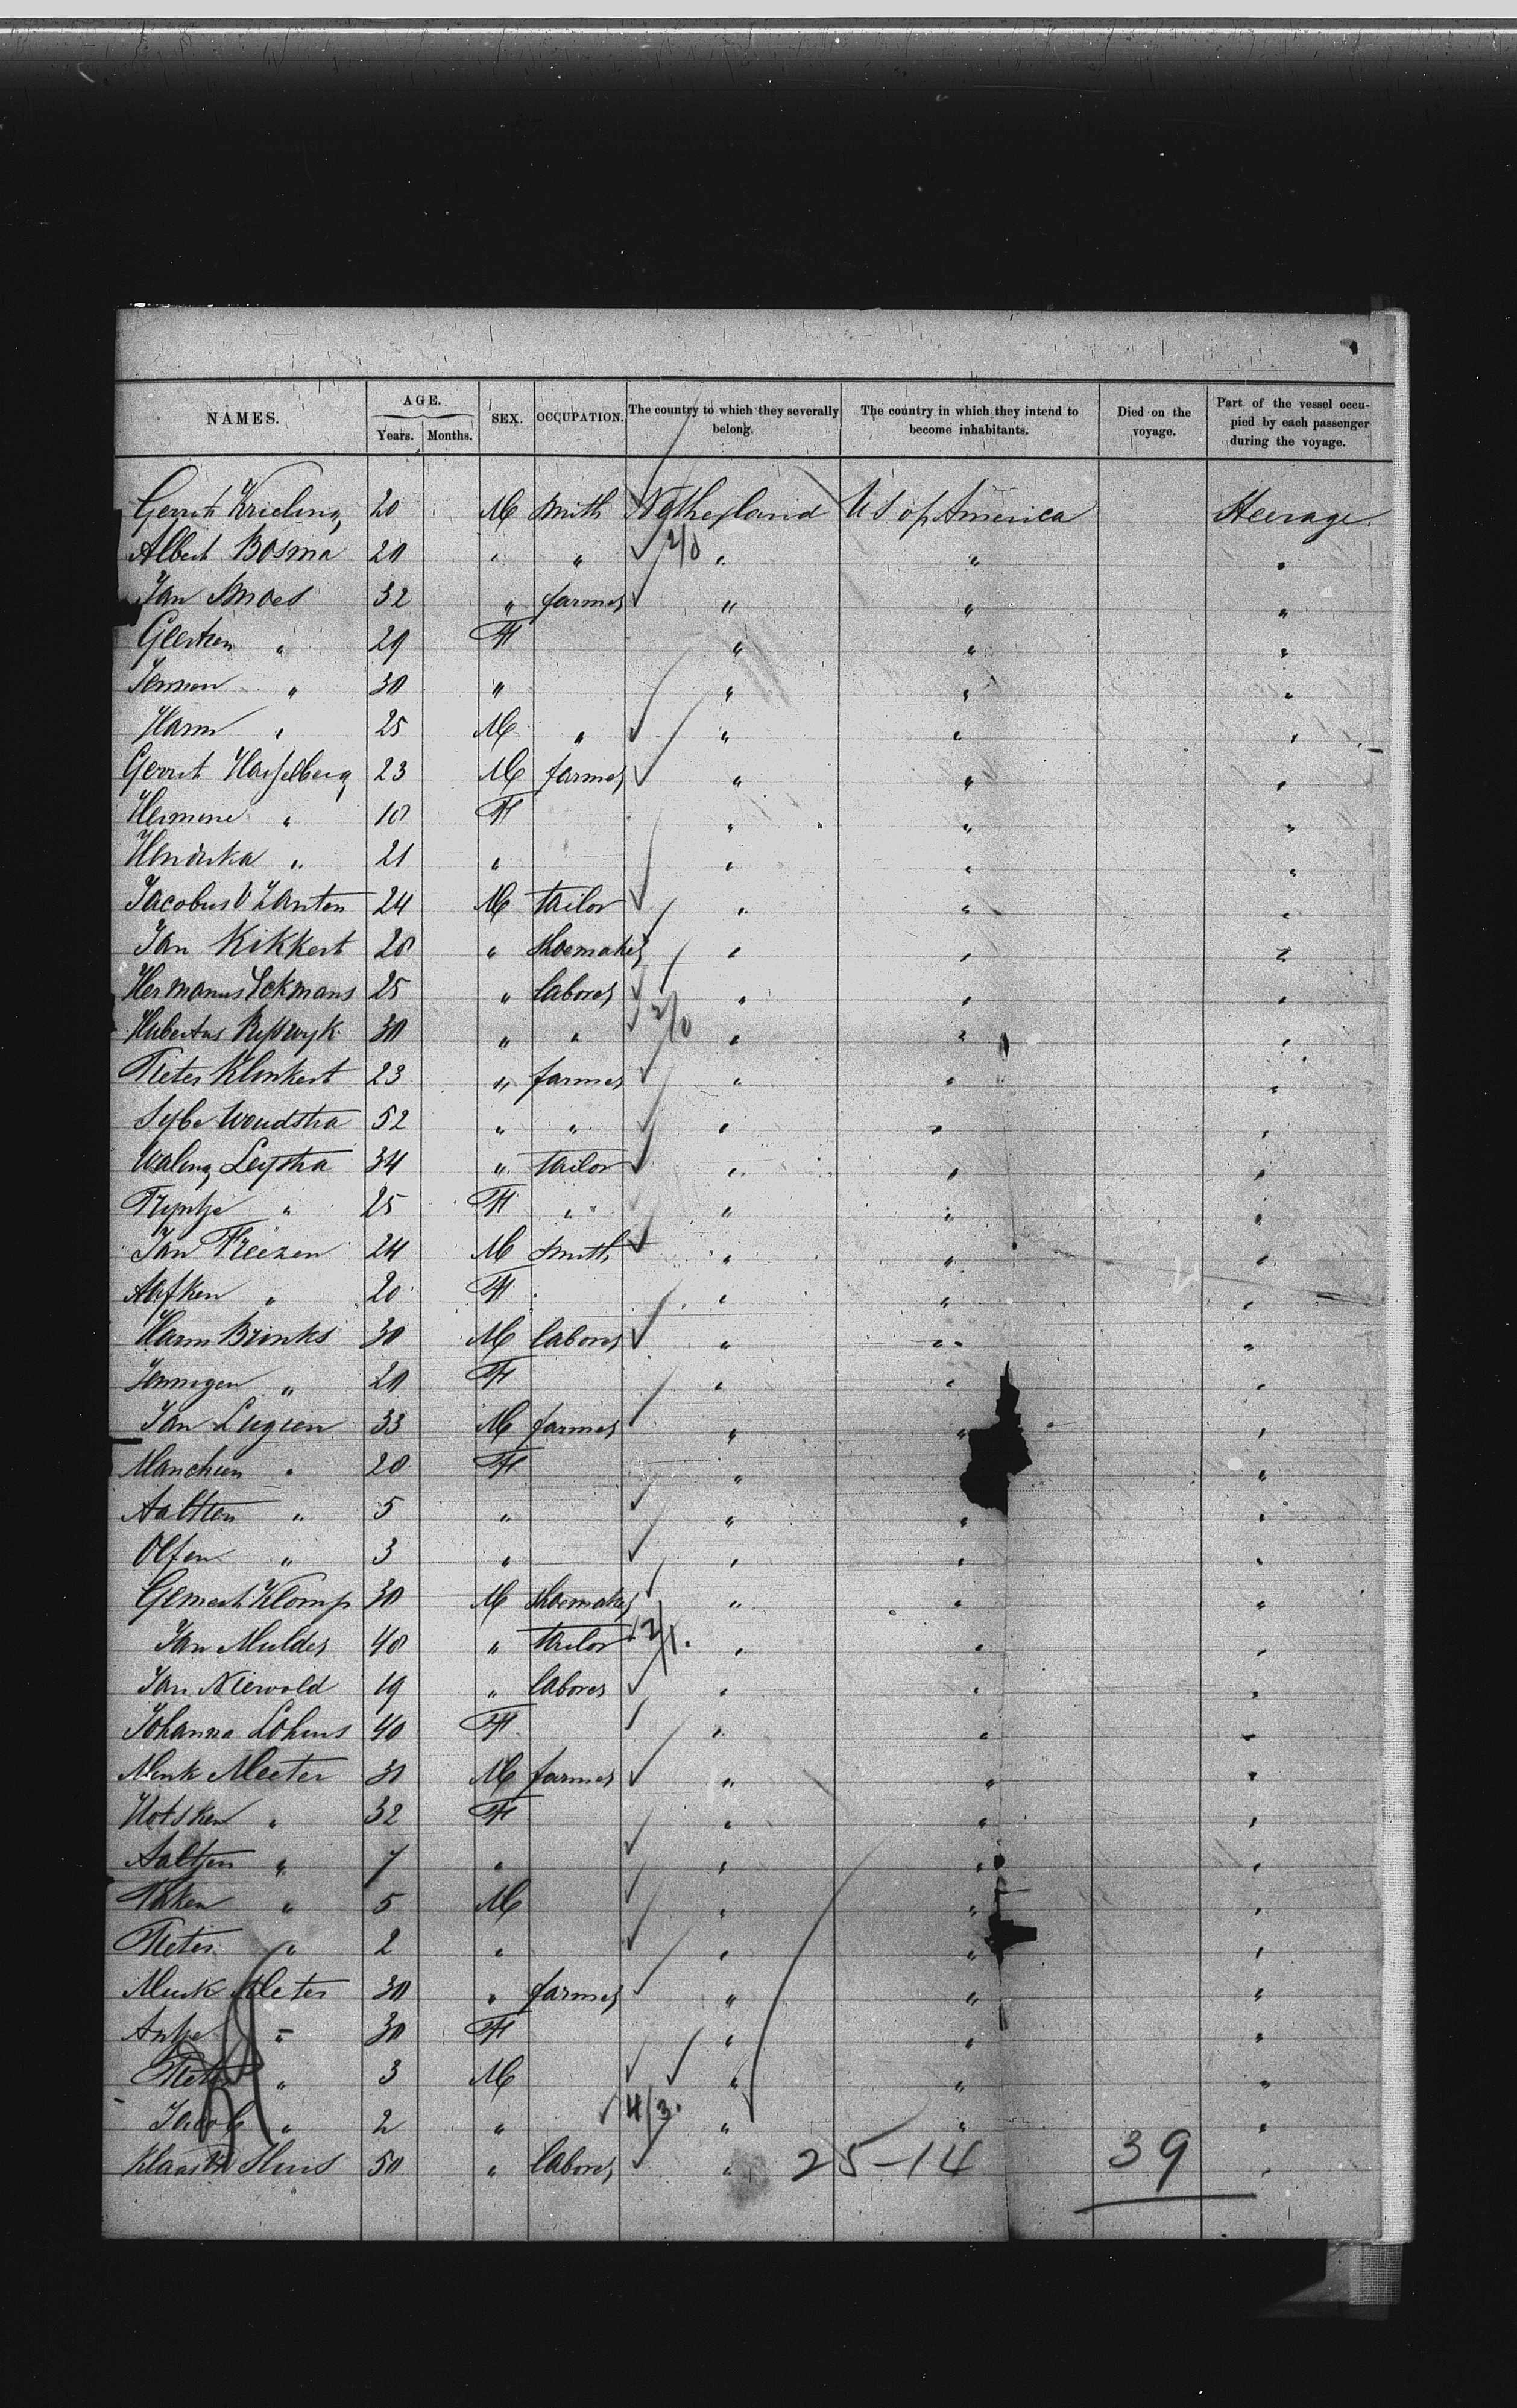 NAMES. AGE. Years. Months. SEX. OCCUPATION. The country to which they severally belong. The country in which they intend to become inhabitants. Died on the voyage. Part of the vessel occupied by each passenger during the voyage.
Gerrit Krieling 20 M Smith Netherland U S of America Steerage
Albert Bosma 20 " " 2/0 " " "
Jan Smoes 32 " farmer " " "
Geertien " 29 F " " "
" 30 " " " "
Harm " 25 M " " " "
Gerrit Hasselberg 23 M farmer " " "
Hermine " 18 F " " "
Hendrika " 21 " " " "
Jacobus V Zanten 24 M tailor " " "
Jan Kikkert 28 " shoemaker " " "
Hermanus Eckmans 25 " labores " " "
Hubertus Ryswyk 30 " " 2/0 " " "
Pieter Klinkert 23 " farmer " " "
Sybe Woudstra 52 " " " " "
Waling Leystra 34 " tailor " " "
Tryntje " 25 F " " " "
Jan Friezen 24 M smith " " "
Aafken " 20 F " " "
Harm Brinks 30 M labores " " "
Jennigen " 20 F " " "
Jan Lugien 33 M farmer " " "
" 28 F " " "
Aaltien " 5 " " " "
" 3 " " " "
Klomp 30 M shoemaker " " "
Jan Mulder 48 " tailor 2/1. " " "
Jan Niewold 19 " labores " " "
Johanna 40 F " " "
Menk Meeter 31 M farmer " " "
" 32 F " " "
Aaltjen " 7 " " " "
" 5 M " " "
Pieter " 2 " " " "
Meeter 30 " farmer " " "
Antje " 30 F " " "
Pieter " 3 M " " "
Jacob " 2 " 4/3. " " "
Klaas Huis 50 " labores " 25-14 39 "